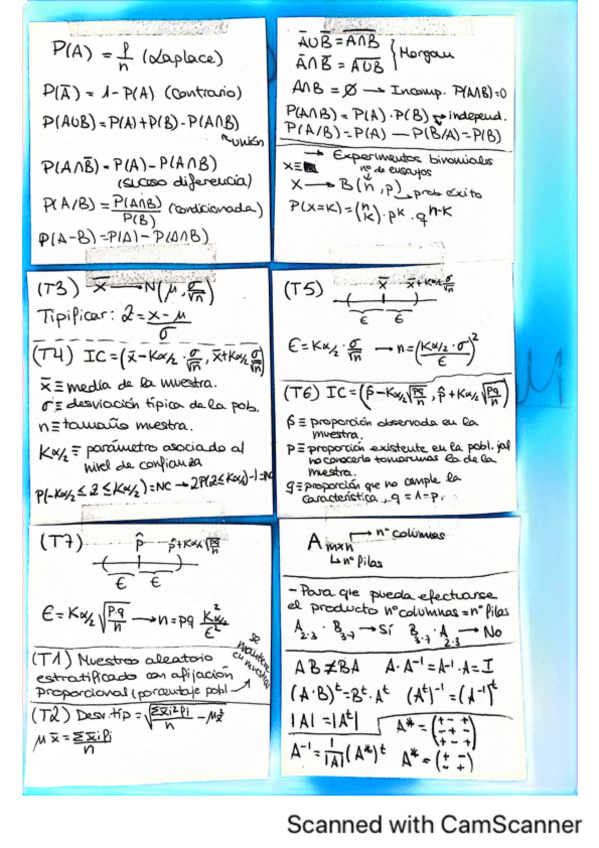 P(A) = f/n (Laplace)
P(Ā) = 1 - P(A) (Contrario)
P(A∪B) = P(A) + P(B) - P(A∩B)
unión
P(A∩B̄) = P(A) - P(A∩B)
(suceso diferencia)
P(A/B) = P(A∩B)/P(B) (condicionada)
P(A-B) = P(A) - P(A∩B)
Ā∪B̄ = \overline{A∩B}
Ā∩B̄ = \overline{A∪B} } Morgan
A∩B = ∅ → Incomp. P(A∩B)=0
P(A∩B) = P(A) · P(B) → independ.
P(A/B) = P(A) — P(B/A) = P(B)
→ Experimentos binomiales
X≡ nº de ensayos
X → B(n, p) → prob éxito
P(X=K) = (n K) · p^K · q^{n-K}
(T3) X̄ → N(μ, σ/√n)
Tipificar: Z = (x - μ)/σ
(T4) IC = (x̄ - Kα/2 · σ/√n, x̄ + Kα/2 σ/√n)
x̄ ≡ media de la muestra.
σ ≡ desviación típica de la pob.
n ≡ tamaño muestra.
Kα/2 ≡ parámetro asociado al
nivel de confianza
P(-Kα/2 ≤ Z ≤ Kα/2) = NC → 2P(Z ≤ Kα/2) - 1 = NC
(T5) x̄ x̄ + Kα/2 σ/√n
ε ε
ε = Kα/2 · σ/√n → n = (Kα/2 · σ / ε)²
(T6) IC = (p̂ - Kα/2 √(pq/n), p̂ + Kα/2 √(pq/n))
p̂ ≡ proporción observada en la
muestra.
p ≡ proporción existente en la pobl. ;al
no conocerla tomaremos la de la
muestra.
q ≡ proporción que no cumple la
característica, q = 1 - p.
(T7) p̂ p̂ + Kα/2 √(pq/n)
ε ε
ε = Kα/2 √(p·q/n) → n = pq K²α/2 / ε²
(T1) Muestreo aleatorio
estratificado con afijación
proporcional (porcentaje pobl →
se mantiene en muestra)
(T2) Desv. típ = √(Σx̄i² fi / n - μx̄²)
μx̄ = Σx̄i fi / n
A m×n → nº columnas
↳ nº filas
- Para que pueda efectuarse
el producto nº columnas = nº filas
A 2·3 · B 3·7 → Sí B 3·7 · A 2·3 → No
AB ≠ BA A · A⁻¹ = A⁻¹ · A = I
(A · B)^t = B^t · A^t (A^t)⁻¹ = (A⁻¹)^t
|A| = |A^t| A* = (+ - + - + - + - +)
A⁻¹ = 1/|A| (A*)^t A* = (+ - - +)
Scanned with CamScanner